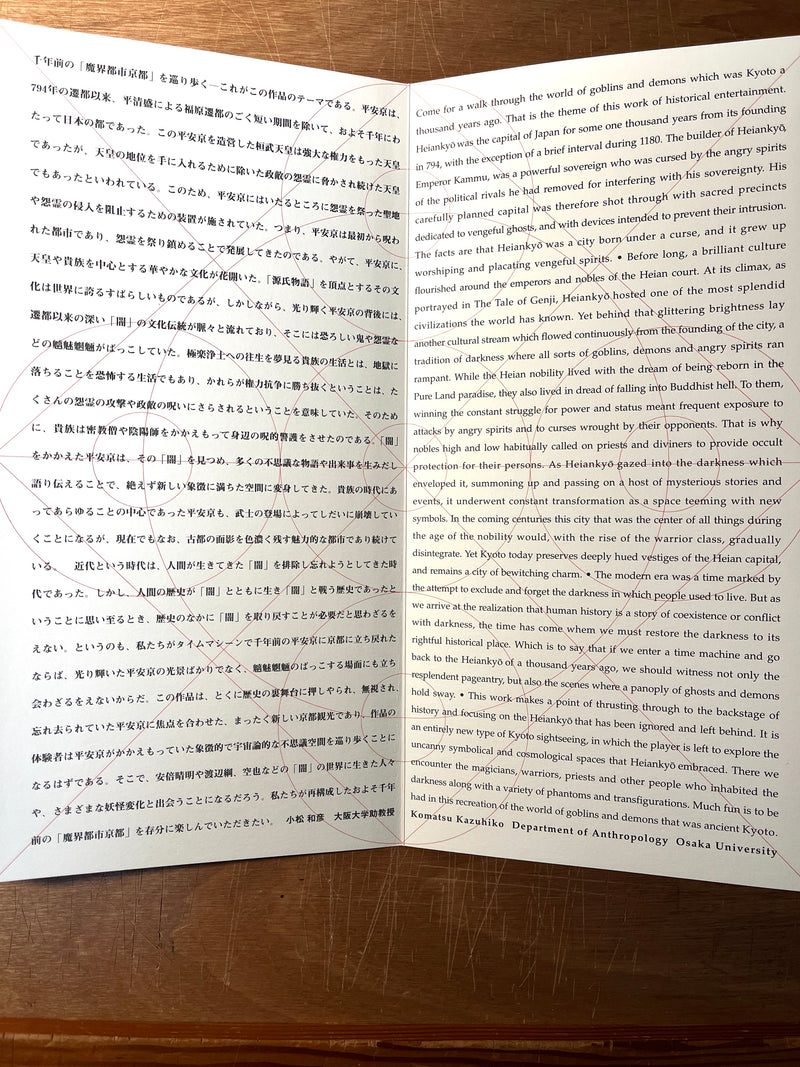 千年前の「魔界都市京都」を巡り歩く―これがこの作品のテーマである。平安京は、
794年の遷都以来、平清盛による福原遷都のごく短い期間を除いて、およそ千年にわ
たって日本の都であった。この平安京を造営した桓武天皇は強大な権力をもった天皇
であったが、天皇の地位を手に入れるために除いた政敵の怨霊に脅かされ続けた天皇
でもあったといわれている。このため、平安京にはいたるところに怨霊を祭った聖地
や怨霊の侵入を阻止するための装置が施されていた。つまり、平安京は最初から呪わ
れた都市であり、怨霊を祭り鎮めることで発展してきたのである。やがて、平安京に、
天皇や貴族を中心とする華やかな文化が花開いた。「源氏物語」を頂点とするその文
化は世界に誇るすばらしいものであるが、しかしながら、光り輝く平安京の背後には、
遷都以来の深い「闇」の文化伝統が脈々と流れており、そこには恐ろしい鬼や怨霊な
どの魑魅魍魎がばっこしていた。極楽浄土への往生を夢見る貴族の生活とは、地獄に
落ちることを恐怖する生活でもあり、かれらが権力抗争に勝ち抜くということは、た
くさんの怨霊の攻撃や政敵の呪いにさらされるということを意味していた。そのため
に、貴族は密教僧や陰陽師をかかえもって身辺の呪的警護をさせたのである。「闇」
をかかえた平安京は、その「闇」を見つめ、多くの不思議な物語や出来事を生みだし
語り伝えることで、絶えず新しい象徴に満ちた空間に変身してきた。貴族の時代にあ
ってあらゆることの中心であった平安京も、武士の登場によってしだいに崩壊してい
くことになるが、現在でもなお、古都の面影を色濃く残す魅力的な都市であり続けて
いる。　近代という時代は、人間が生きてきた「闇」を排除し忘れようとしてきた時
代であった。しかし、人間の歴史が「闇」とともに生き「闇」と戦う歴史であったと
いうことに思い至るとき、歴史のなかに「闇」を取り戻すことが必要だと思わざるを
えない。というのも、私たちがタイムマシーンで千年前の平安京に京都に立ち戻れた
ならば、光り輝いた平安京の光景ばかりでなく、魑魅魍魎のばっこする場面にも立ち
会わざるをえないからだ。この作品は、とくに歴史の裏舞台に押しやられ、無視され、
忘れ去られていた平安京に焦点を合わせた、まったく新しい京都観光であり、作品の
体験者は平安京がかかえもっていた象徴的で宇宙論的な不思議空間を巡り歩くことに
なるはずである。そこで、安倍晴明や渡辺綱、空也などの「闇」の世界に生きた人々
や、さまざまな妖怪変化と出会うことになるだろう。私たちが再構成したおよそ千年
前の「魔界都市京都」を存分に楽しんでいただきたい。　小松 和彦　大阪大学助教授
Come for a walk through the world of goblins and demons which was Kyoto a
thousand years ago. That is the theme of this work of historical entertainment.
Heiankyō was the capital of Japan for some one thousand years from its founding
in 794, with the exception of a brief interval during 1180. The builder of Heiankyō,
Emperor Kammu, was a powerful sovereign who was cursed by the angry spirits
of the political rivals he had removed for interfering with his sovereignty. His
carefully planned capital was therefore shot through with sacred precincts
dedicated to vengeful ghosts, and with devices intended to prevent their intrusion.
The facts are that Heiankyō was a city born under a curse, and it grew up
worshiping and placating vengeful spirits. • Before long, a brilliant culture
flourished around the emperors and nobles of the Heian court. At its climax, as
portrayed in The Tale of Genji, Heiankyō hosted one of the most splendid
civilizations the world has known. Yet behind that glittering brightness lay
another cultural stream which flowed continuously from the founding of the city, a
tradition of darkness where all sorts of goblins, demons and angry spirits ran
rampant. While the Heian nobility lived with the dream of being reborn in the
Pure Land paradise, they also lived in dread of falling into Buddhist hell. To them,
winning the constant struggle for power and status meant frequent exposure to
attacks by angry spirits and to curses wrought by their opponents. That is why
nobles high and low habitually called on priests and diviners to provide occult
protection for their persons. As Heiankyō gazed into the darkness which
enveloped it, summoning up and passing on a host of mysterious stories and
events, it underwent constant transformation as a space teeming with new
symbols. In the coming centuries this city that was the center of all things during
the age of the nobility would, with the rise of the warrior class, gradually
disintegrate. Yet Kyoto today preserves deeply hued vestiges of the Heian capital,
and remains a city of bewitching charm. • The modern era was a time marked by
the attempt to exclude and forget the darkness in which people used to live. But as
we arrive at the realization that human history is a story of coexistence or conflict
with darkness, the time has come whem we must restore the darkness to its
rightful historical place. Which is to say that if we enter a time machine and go
back to the Heiankyō of a thousand years ago, we should witness not only the
resplendent pageantry, but also the scenes where a panoply of ghosts and demons
hold sway. • This work makes a point of thrusting through to the backstage of
history and focusing on the Heiankyō that has been ignored and left behind. It is
an entirely new type of Kyoto sightseeing, in which the player is left to explore the
uncanny symbolical and cosmological spaces that Heiankyō embraced. There we
encounter the magicians, warriors, priests and other people who inhabited the
darkness along with a variety of phantoms and transfigurations. Much fun is to be
had in this recreation of the world of goblins and demons that was ancient Kyoto.
Komatsu Kazuhiko Department of Anthropology Osaka University